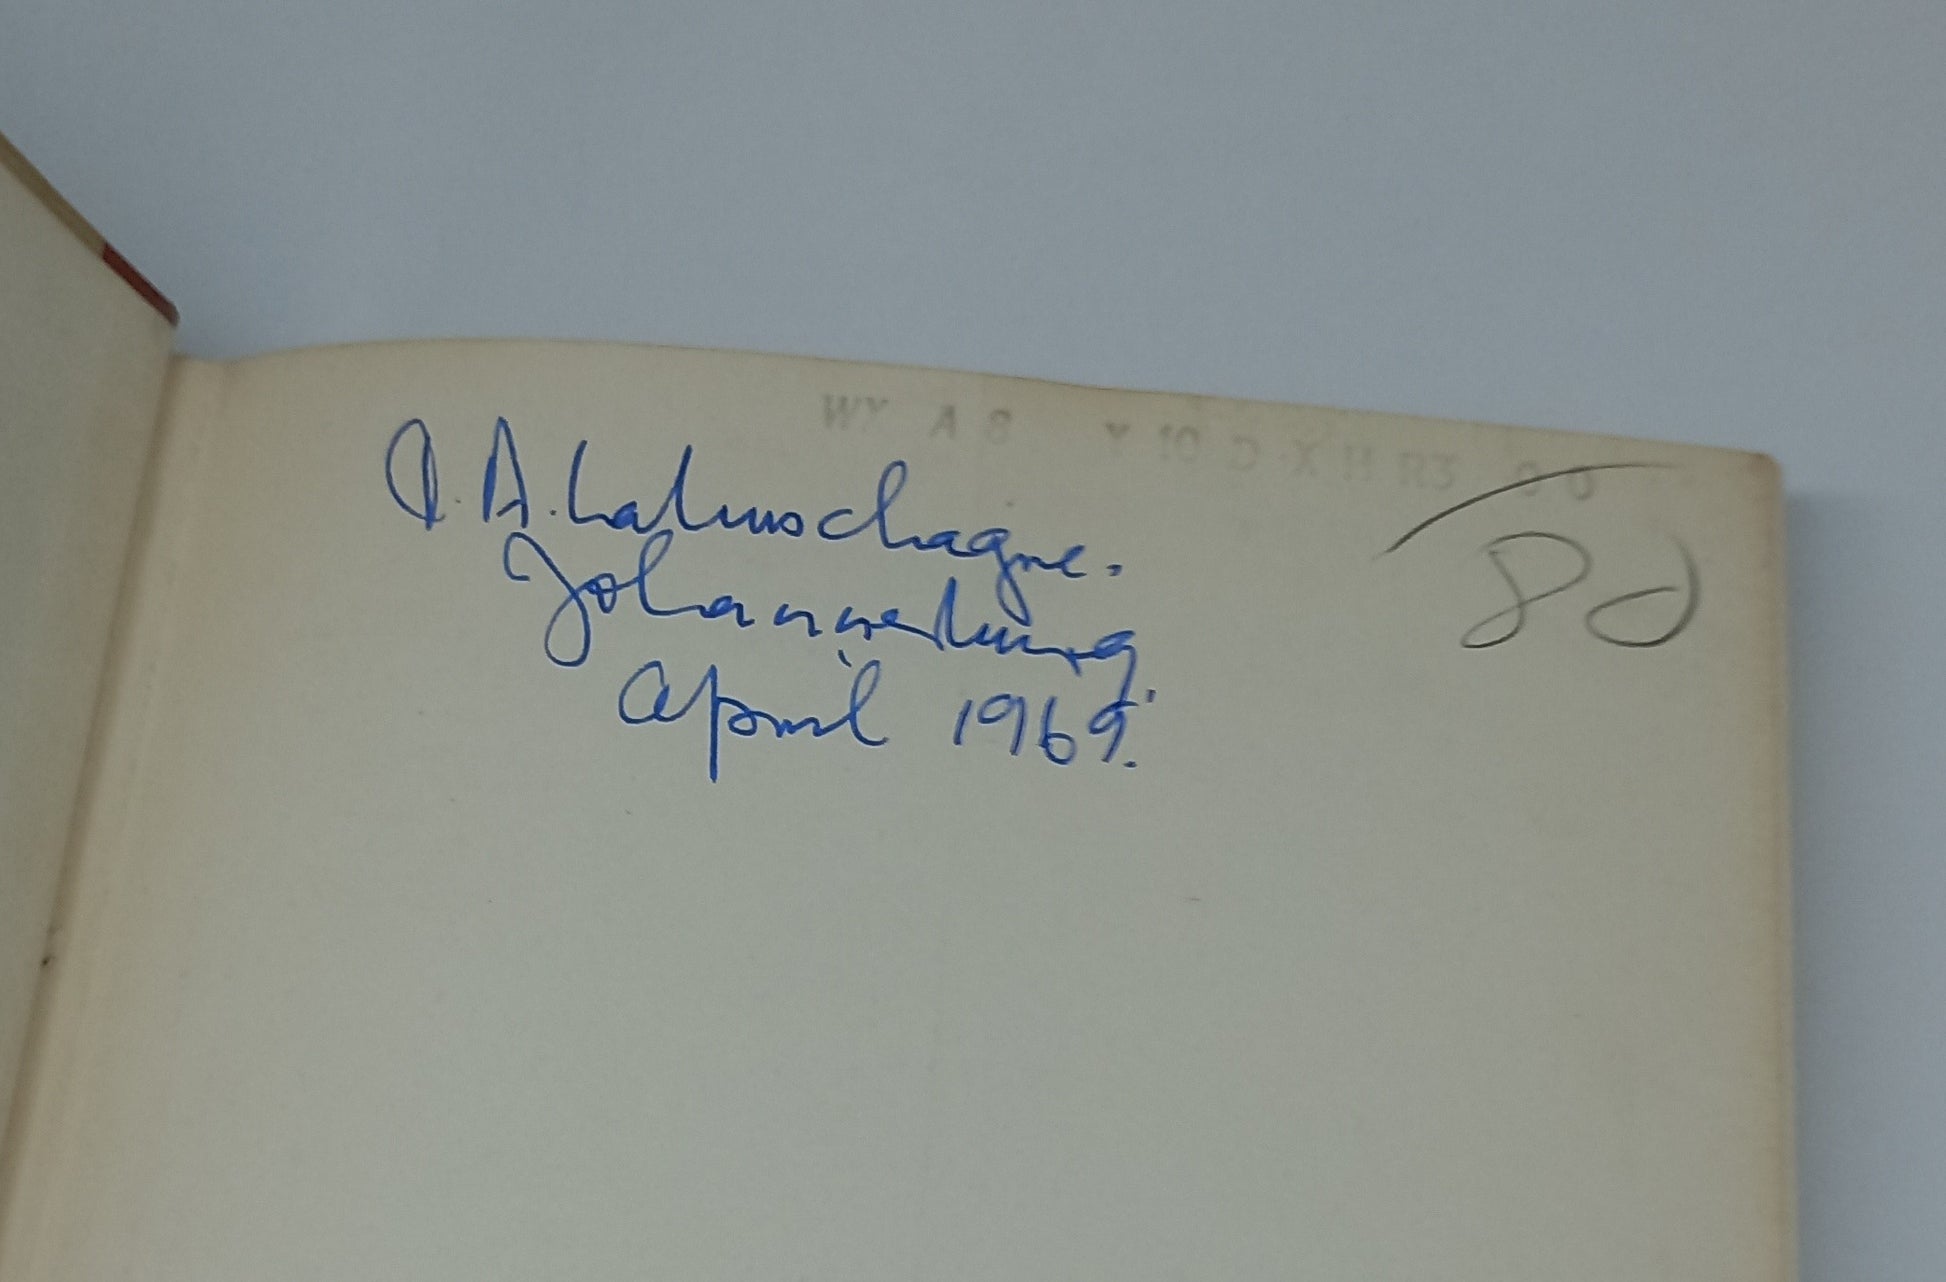 WY A 8 Y 10 D X H R3 9 6
A. Labuschagne.
Johannesburg.
April 1969.